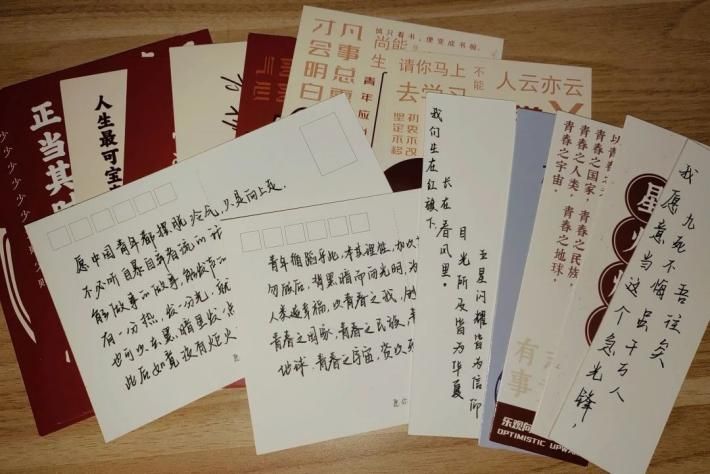 才凡
会事
明总
白要
慎只看书,便变成书橱。
尚能
生
请你马上
去学习
不能
人云亦云
青年应
初衷不改
坚定不移
正当其时
少少少少少
人生最可宝
愿中国青年都摆脱冷气,只是向上走,
不必听自暴自弃者流的话
能做事的做事,能发声的
有一分热,发一分光,就
也可以在黑暗里发一点
此后如竟没有炬火
青年循蹈乎此,本其理性,加以
勿顾后,背黑暗而向光明,为
人类造幸福,以青春之我,创
青春之国家,青春之民族,青
地球,青春之宇宙,资以
我们生在红旗下,
长在春风里。
目光所及皆为华夏
五星闪耀皆为信仰
以青
青春之国家,青春之民族,
青春之人类,青春之地球,
青春之宇宙。
星
有
事
乐观向
OPTIMISTIC UPWA
我愿意当这个急先锋,
九死不悔
虽千万人
吾往矣